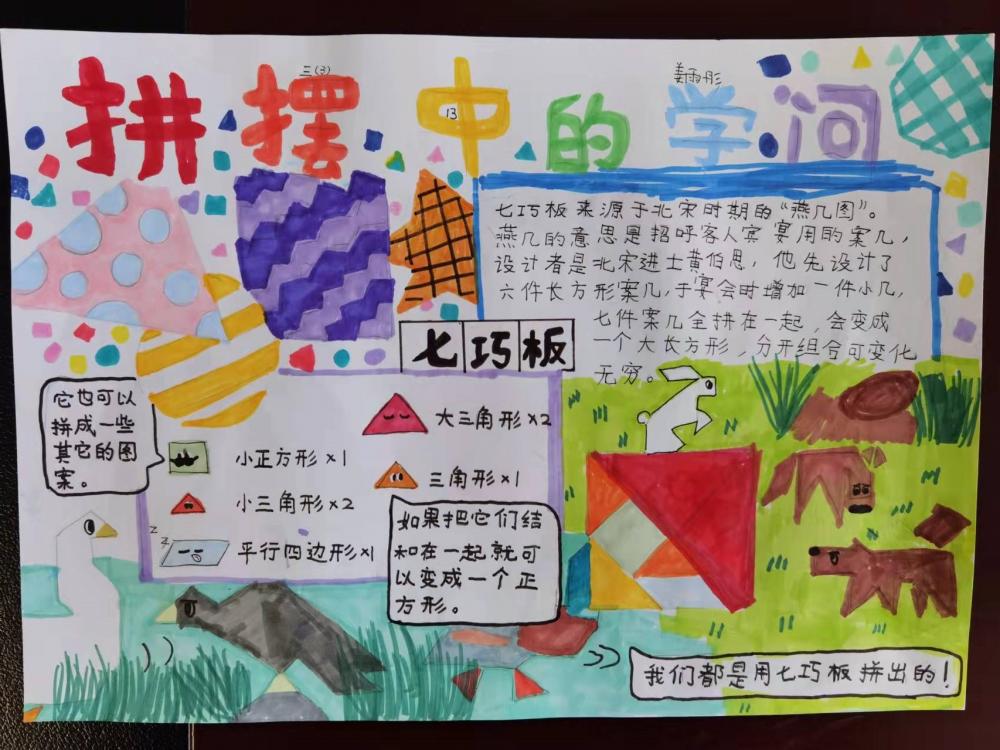 三(3)
姜雨彤
拼摆中的学问
13
七巧板来源于北宋时期的“燕几图”。
燕几的意思是招呼客人宾宴用的案几,
设计者是北宋进士黄伯思,他先设计了
六件长方形案几,于宴会时增加一件小几,
七件案几全拼在一起,会变成
一个大长方形,分开组合可变化
无穷。
七巧板
它也可以
拼成一些
其它的图
案。
大三角形×2
小正方形×1
三角形×1
小三角形×2
平行四边形×1
z
z
如果把它们结
和在一起就可
以变成一个正
方形。
我们都是用七巧板拼出的!